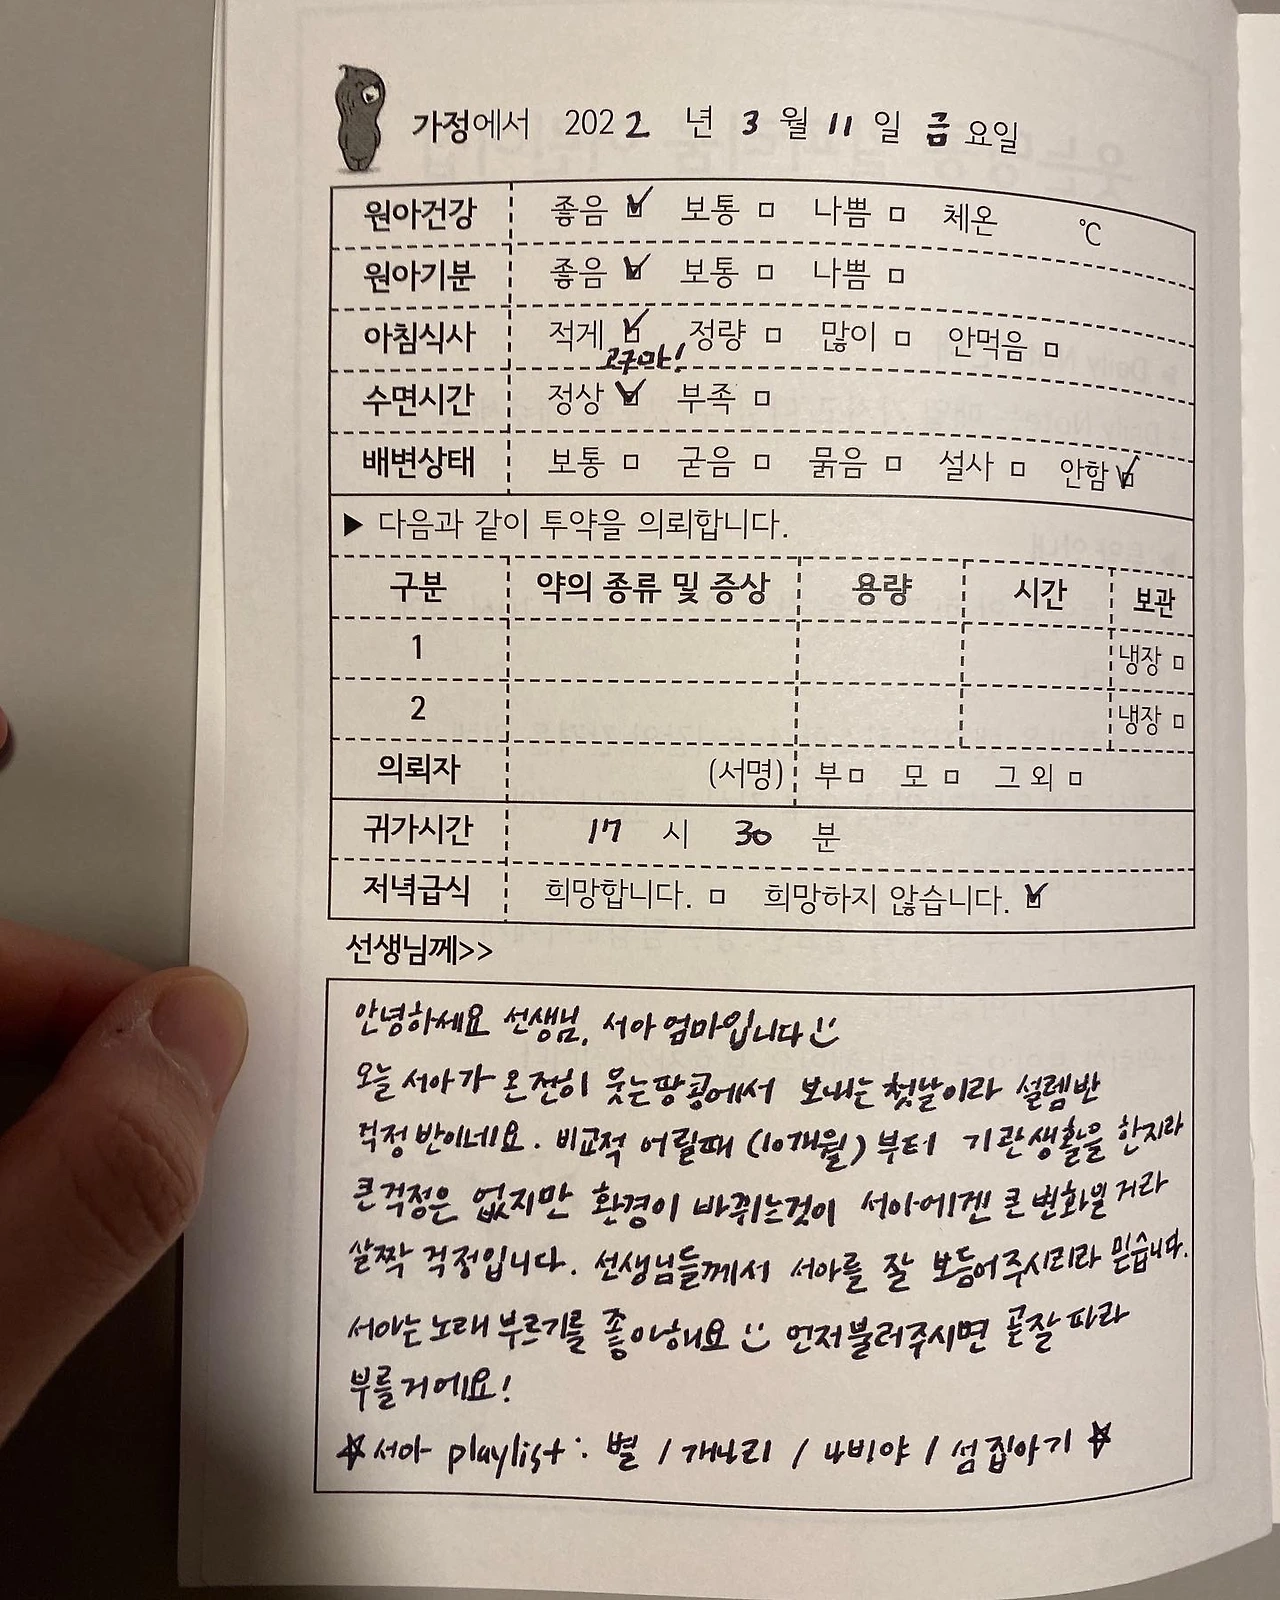 가정에서 2022 년 3 월 11 일 금 요일
원아건강 좋음 ☑ 보통 □ 나쁨 □ 체온 ℃
원아기분 좋음 ☑ 보통 □ 나쁨 □
아침식사 적게 ☑ 정량 □ 많이 □ 안먹음 □
고구마!
수면시간 정상 ☑ 부족 □
배변상태 보통 □ 굳음 □ 묽음 □ 설사 □ 안함 ☑
▶ 다음과 같이 투약을 의뢰합니다.
구분 약의 종류 및 증상 용량 시간 보관
1 냉장 □
2 냉장 □
의뢰자 (서명) 부 □ 모 □ 그 외 □
귀가시간 17 시 30 분
저녁급식 희망합니다. □ 희망하지 않습니다. ☑
선생님께>>
안녕하세요 선생님, 서아 엄마입니다 :)
오늘 서아가 온전히 웃는땅콩에서 보내는 첫날이라 설렘반
걱정반이네요. 비교적 어릴때 (10개월) 부터 기관생활을 한지라
큰걱정은 없지만 환경이 바뀌는것이 서아에겐 큰 변화일거라
살짝 걱정입니다. 선생님들께서 서아를 잘 보듬어주시리라 믿습니다.
서아는 노래 부르기를 좋아해요 :) 먼저불러주시면 곧잘 따라
부를거에요!
☆서아 playlist: 별 / 개나리 / 나비야 / 섬집아기 ☆